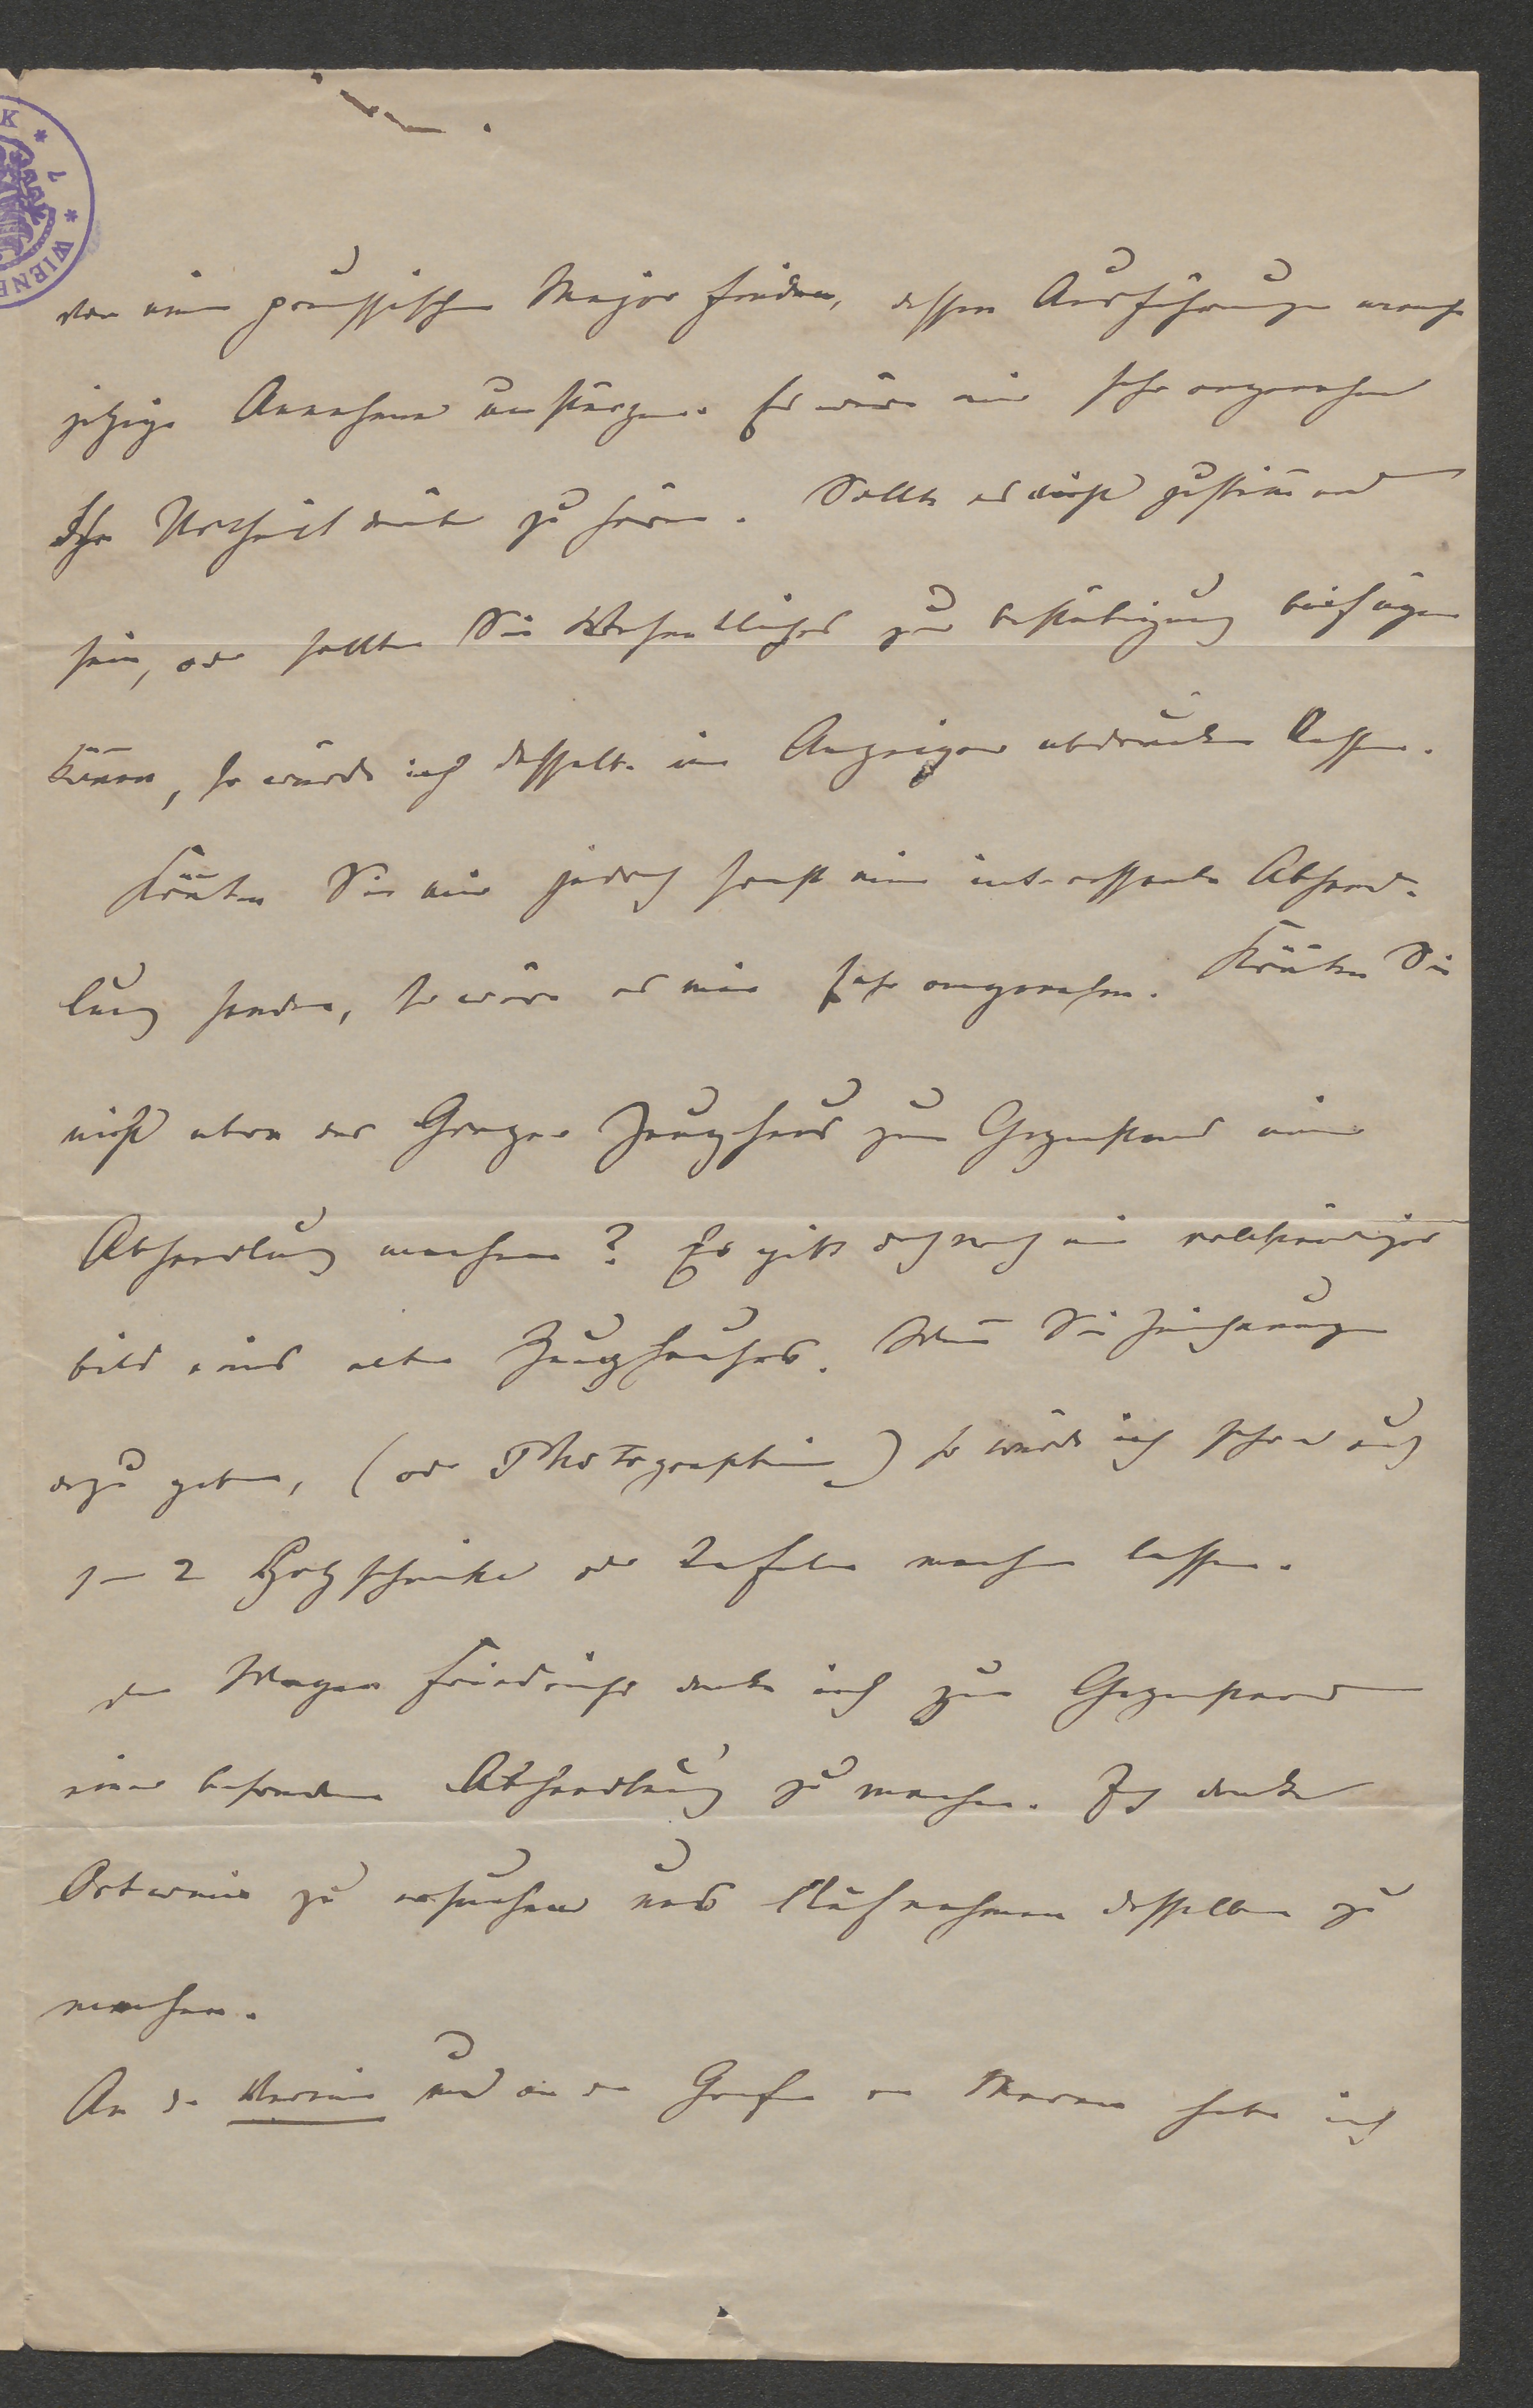 von einem preussischen Major finden, dessen Ausführungen manche
jetzige Annahme umstürzen. Es wäre mir sehr angenehm
Ihr Urtheil darüber zu hören. Sollte es nicht zustimmend
sein, oder sollten Sie Wesentliches zur Bestätigung beifügen
können, so würde ich dasselbe im Anzeiger abdrucken lassen.
Könnten Sie mir jedoch sonst eine interessante Abhand-
lung senden, so wäre es mir sehr angenehm. Könnten Sie
nicht etwa das Grazer Zeughaus zum Gegenstand einer
Abhandlung machen? Es gibt doch noch ein vollständiges
Bild eines alten Zeughauses. Wenn Sie Zeichnungen
dazu geben, (oder Photographien) so würde ich sehr auch
1–2 Holzschnitte oder Tafeln machen lassen.
den Wagen Friedrichs denke ich zum Gegenstand
einer besonderen Abhandlung zu machen. Ich denke
Ortwein zu ersuchen uns Aufnahmen desselben zu
machen.
An den Verein und an den Grafen von Meran habe ich
WIENE
K